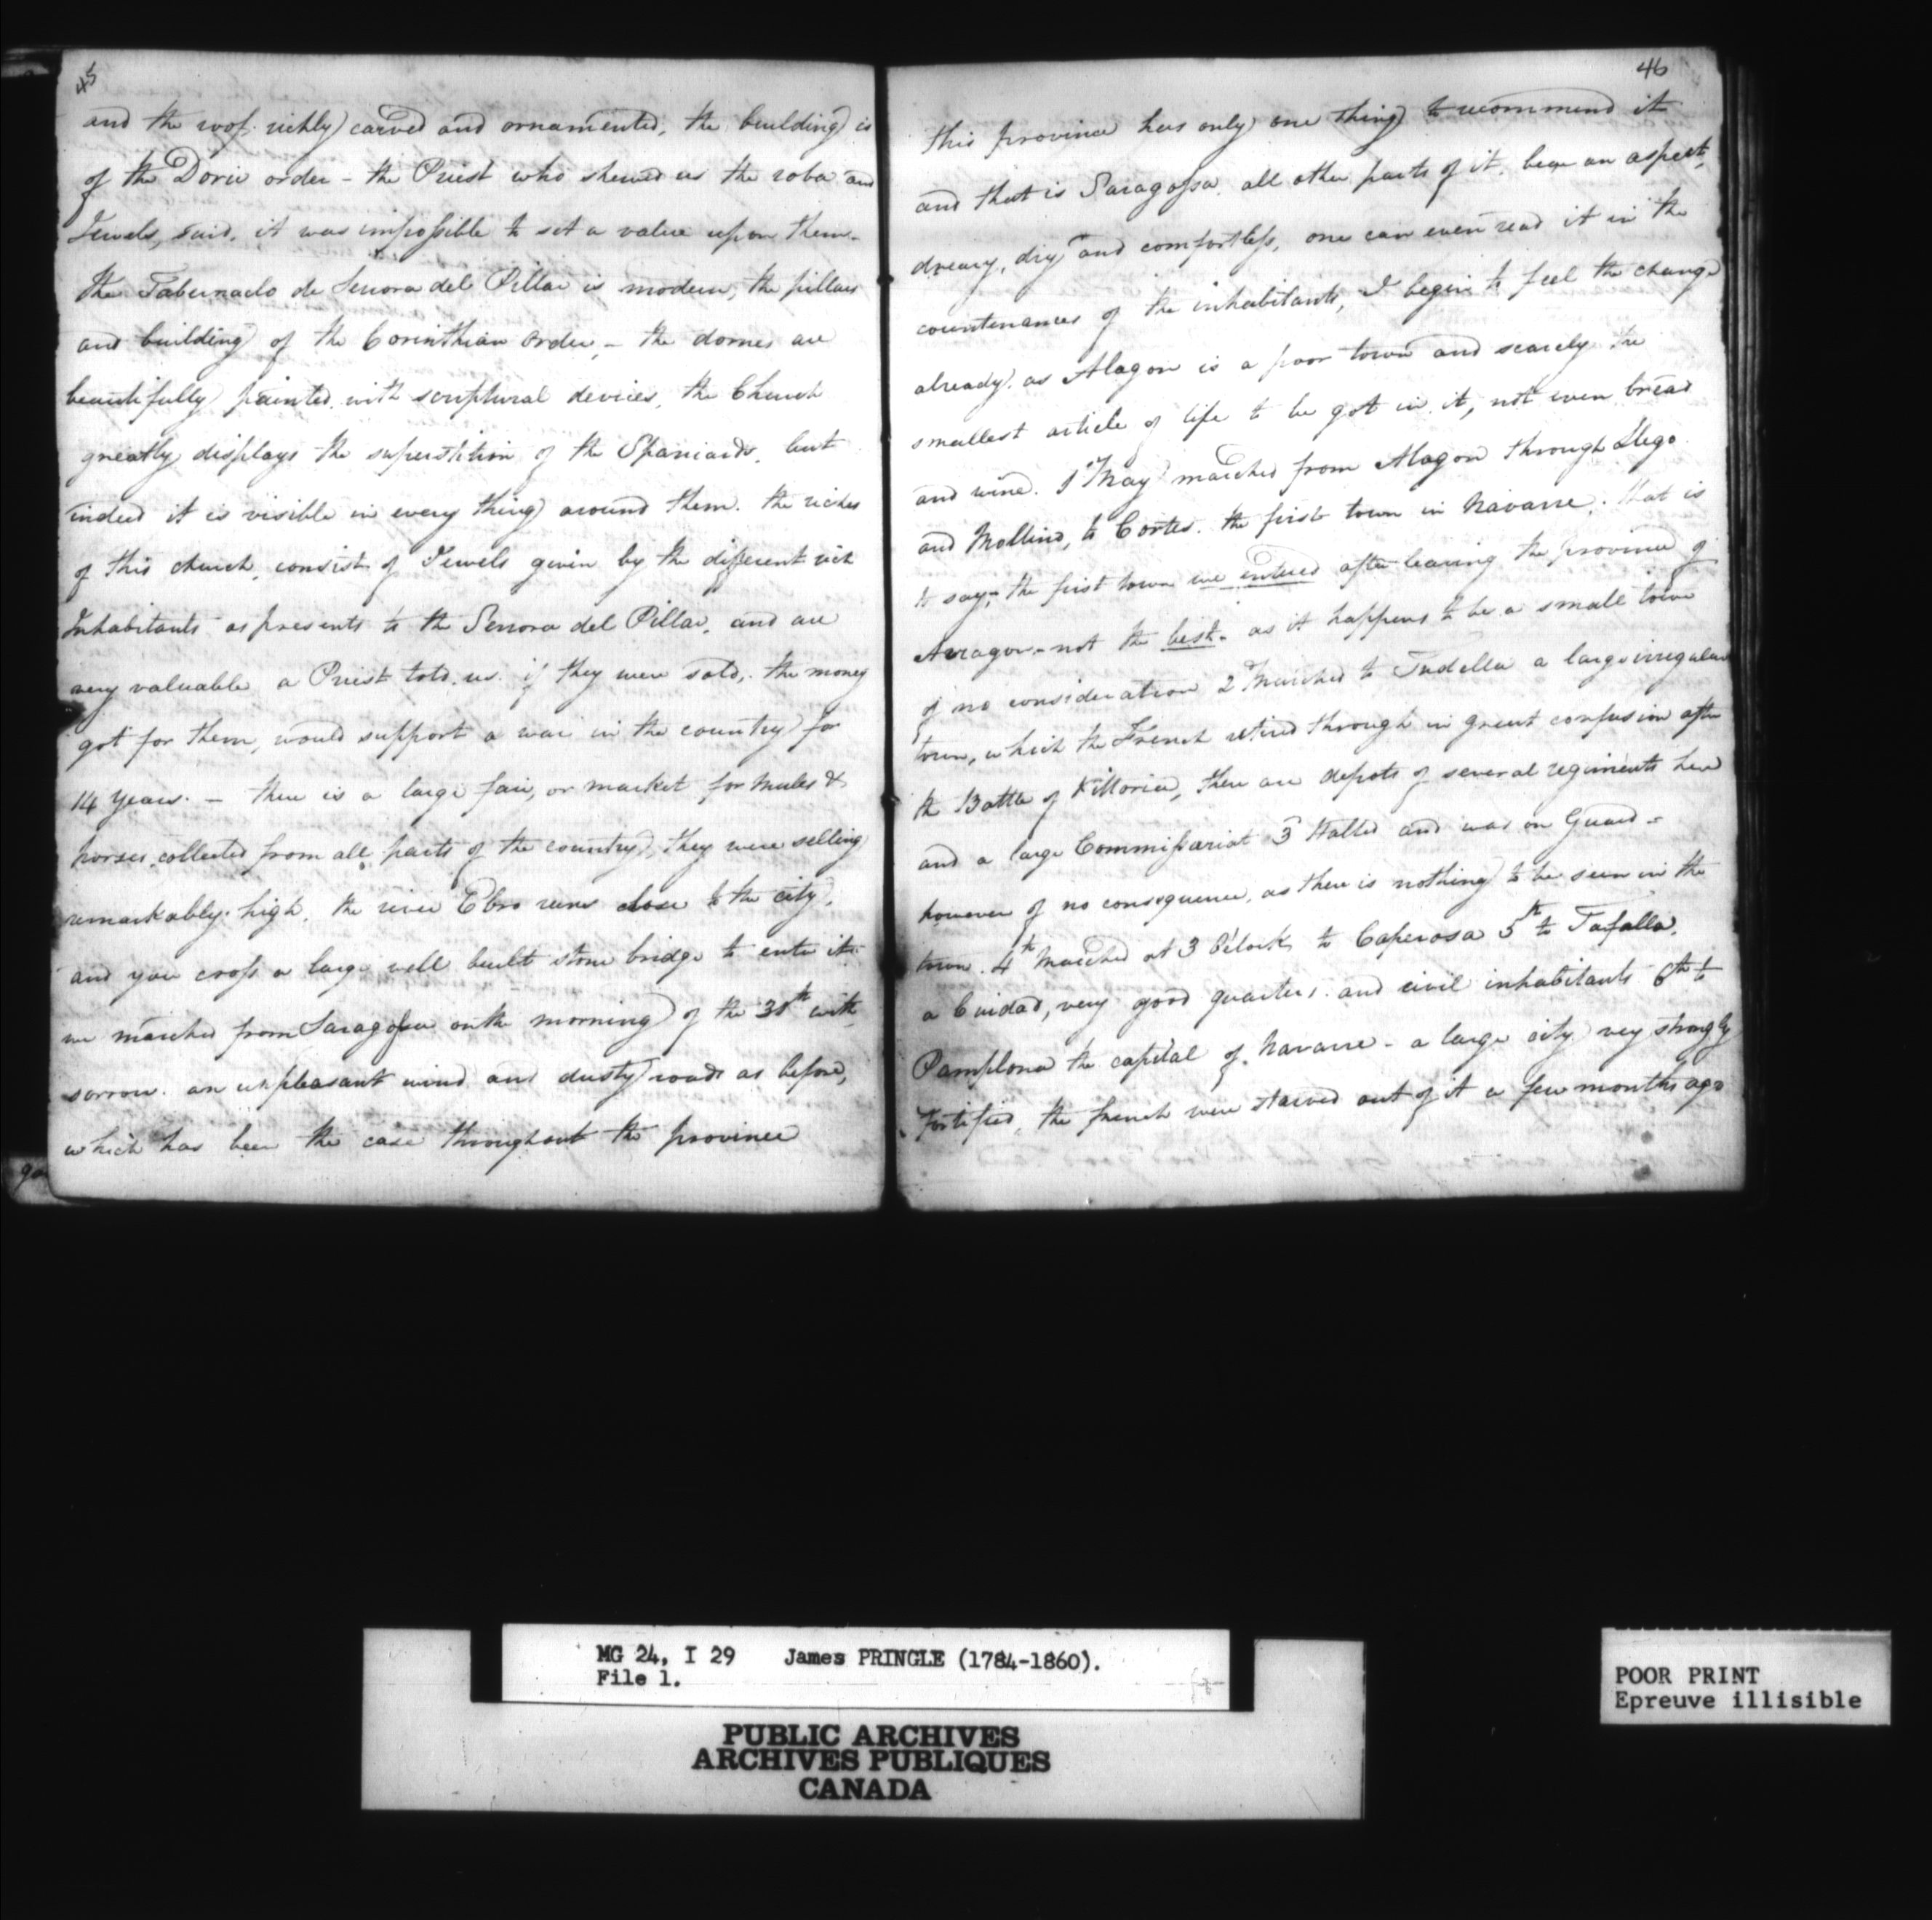 45
and the roof richly carved and ornamented, the building is
of the Doric order - the Priest who shewed us the robe and
Jewels, said, it was impossible to set a value upon them.
the Tabernaclo de Senora del Pillar is modern, the pillars
and building of the Corinthian Order, - the domes are
beautifully painted with scriptural devices, the Church
greatly displays the superstition of the Spaniards, but
indeed it is visible in every thing around them. the riches
of this church, consist of Jewels given by the different rich
Inhabitants as presents to the Senora del Pillar, and are
very valuable a Priest told us if they were sold, the money
got for them, would support a war in the country for
14 years. - there is a large fair, or market for mules &
horses collected from all parts of the country, they were selling
remarkably high. the river Ebro runs close to the city,
and you cross a large well built stone bridge to enter it.
we marched from Saragossa on the morning of the 30th with
sorrow. an unpleasant wind and dusty roads as before,
which has been the case throughout the province
46
this province has only one thing to recommend it
and that is Saragossa. all other parts of it, bear an aspect,
dreary, dry and comfortless, one can even read it in the
countenances of the inhabitants, I begin to feel the change
already, as Alagon is a poor town and scarcely the
smallest article of life to be got in it, not even bread
and wine. 1st May marched from Alagon through Llego
and Mallino, to Cortes. the first town in Navarre, that is
to say, the first town we entered after leaving the province of
Arragon - not the best - as it happens to be a small town
of no consideration 2d marched to Tudella a large irregular
town, which the French retired through in great confusion after
the Battle of Vittoria, there are depots of several regiments here
and a large Commissariat 3d Halted and was on Guard -
however of no consequence, as there is nothing to be seen in the
town. 4th marched at 3 O'clock to Caperosa 5th to Tafalla,
a Cuidad, very good quarters and civil inhabitants 6th to
Pamplona the capital of Navarre - a large city very strongly
fortified, the french were starved out of it a few months ago
MG 24, I 29 James PRINGLE (1784-1860).
File 1.
PUBLIC ARCHIVES
ARCHIVES PUBLIQUES
CANADA
POOR PRINT
Epreuve illisible